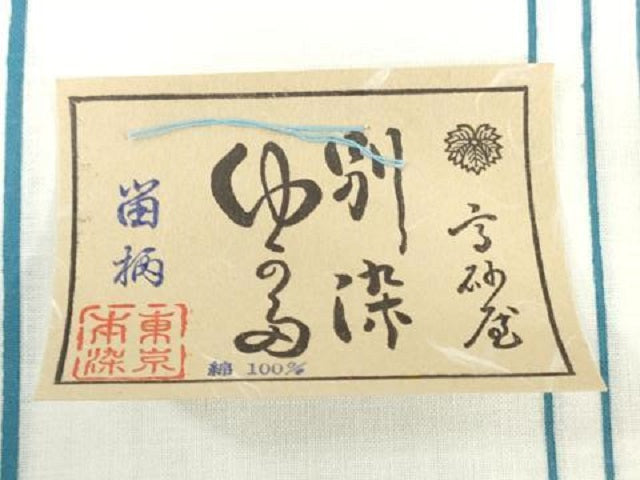 高砂屋
別染
ゆかた
留柄
東京
本染
綿 100%